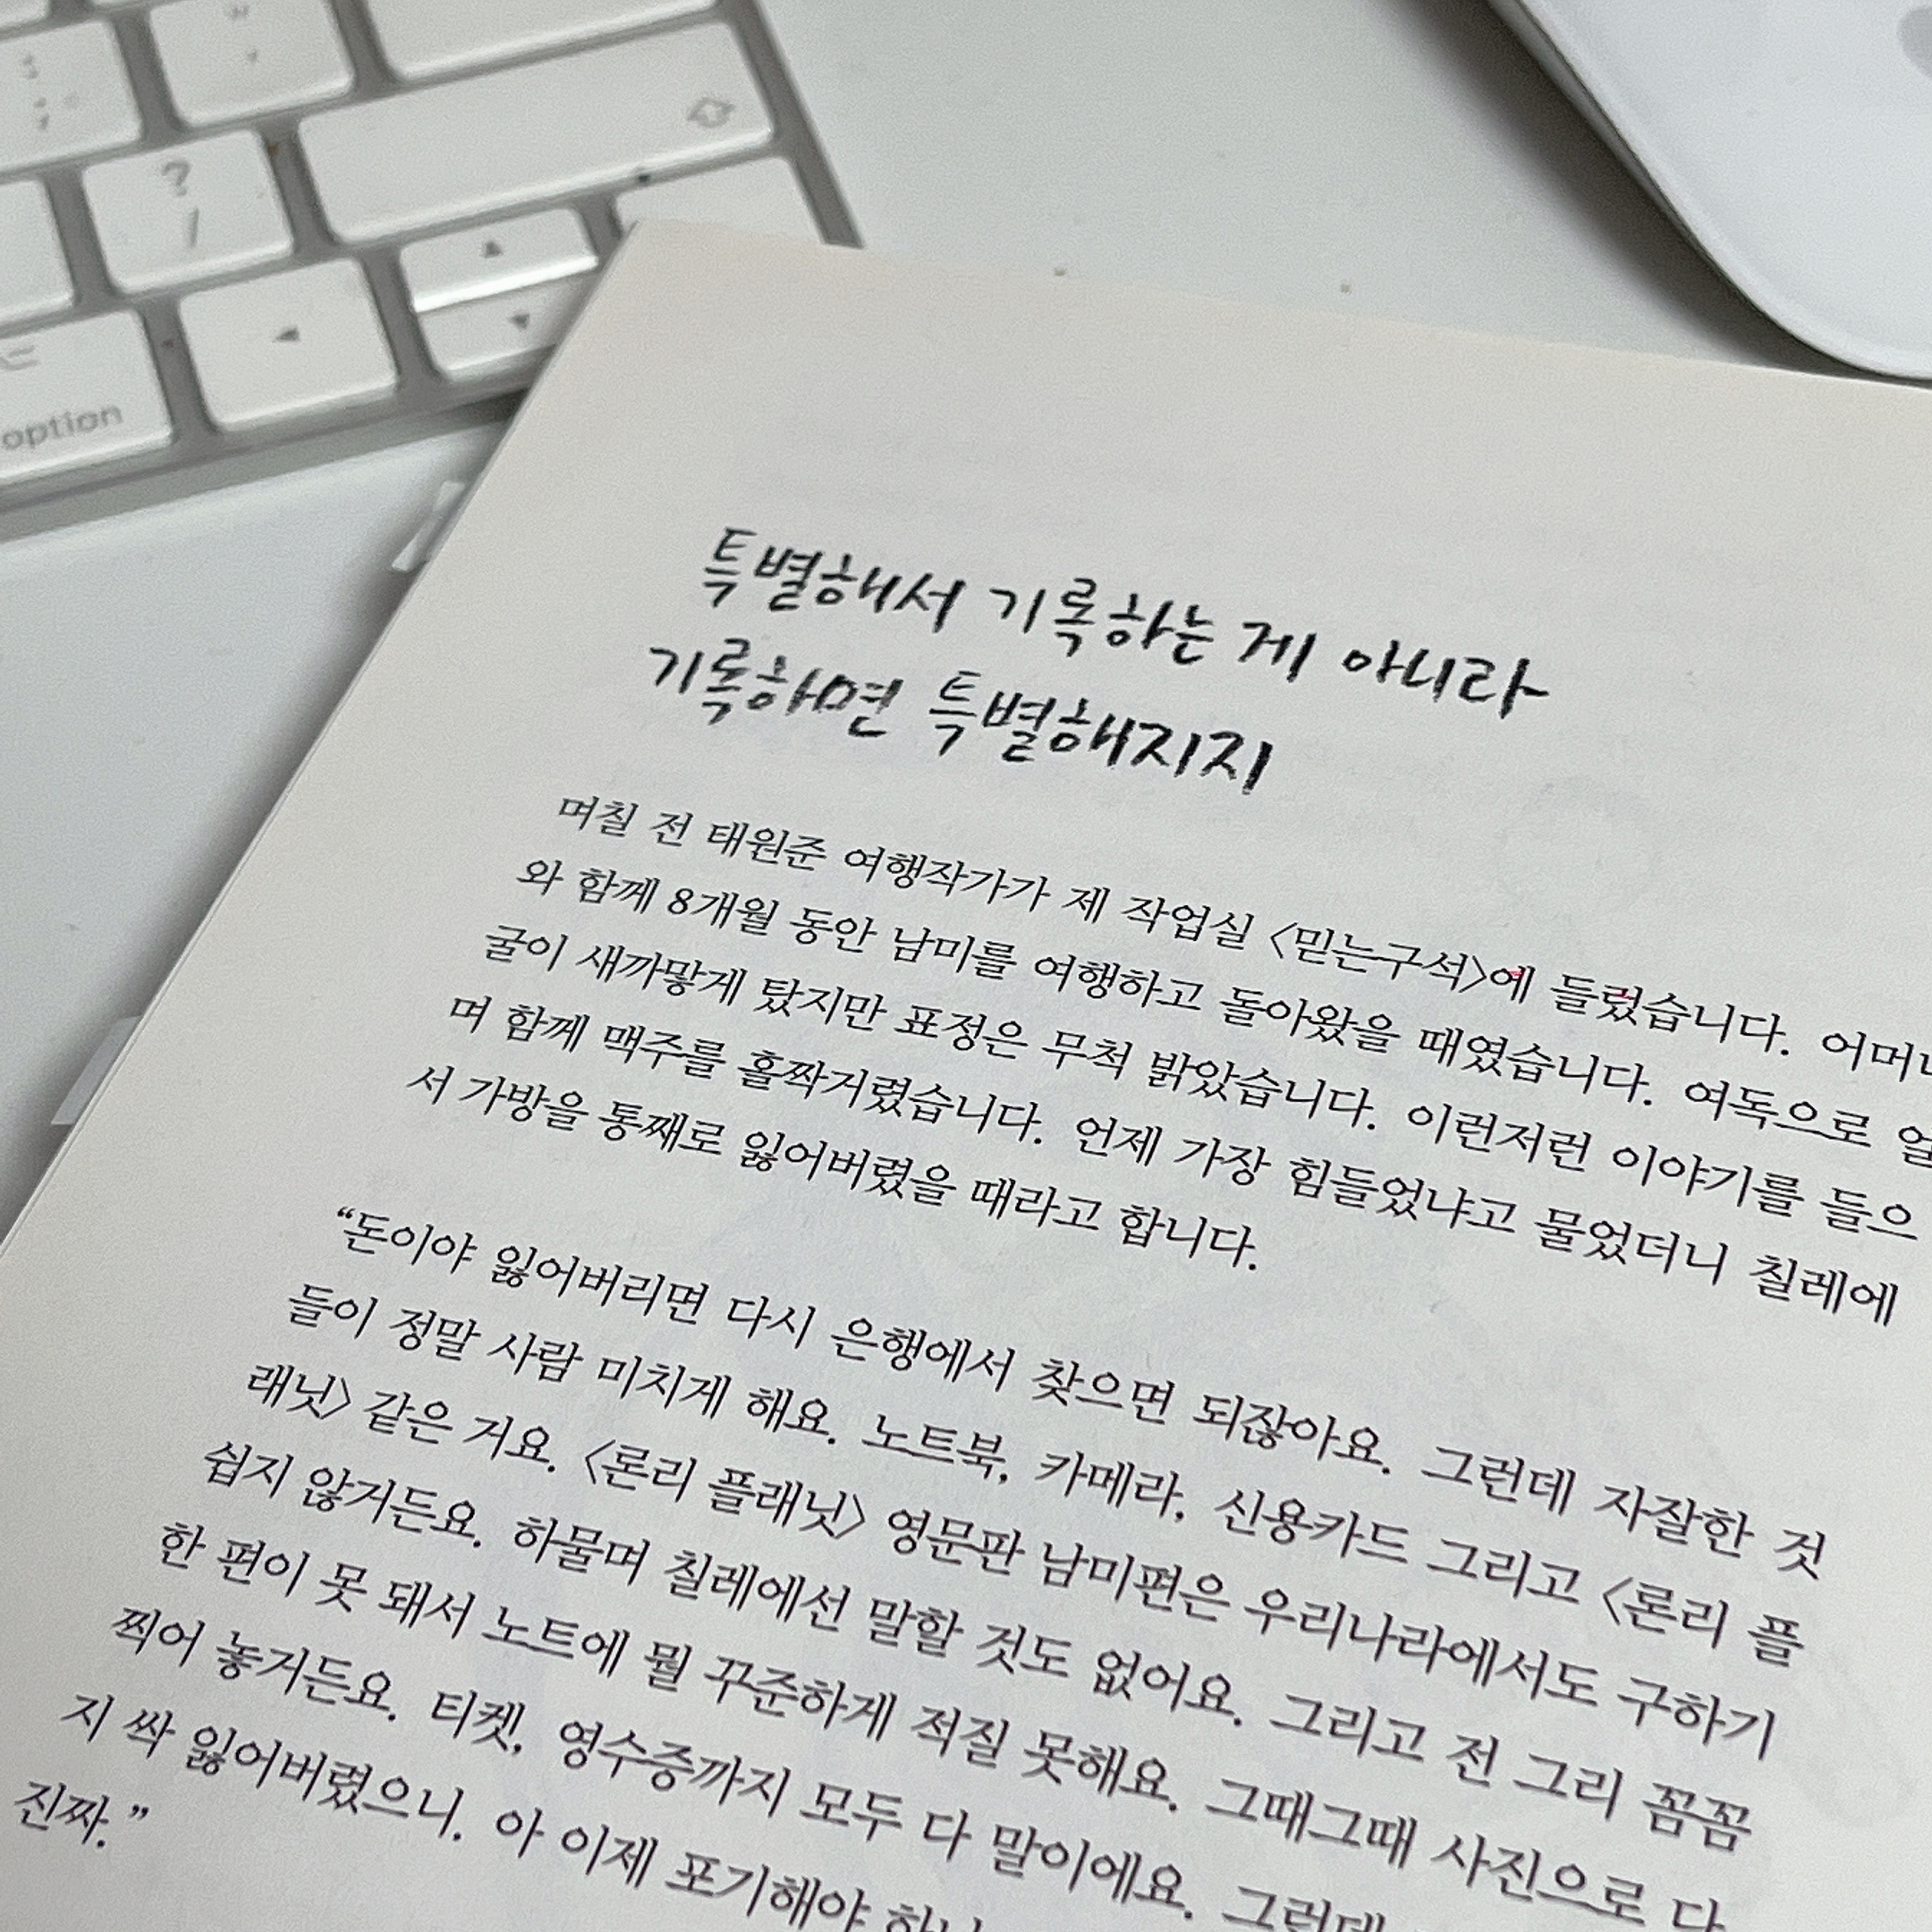 option
?
/
특별해서 기록하는 게 아니라
기록하면 특별해지지
며칠 전 태원준 여행작가가 제 작업실 〈믿는구석〉에 들렀습니다. 어머니
와 함께 8개월 동안 남미를 여행하고 돌아왔을 때였습니다. 여독으로 얼
굴이 새까맣게 탔지만 표정은 무척 밝았습니다. 이런저런 이야기를 들으
며 함께 맥주를 홀짝거렸습니다. 언제 가장 힘들었냐고 물었더니 칠레에
서 가방을 통째로 잃어버렸을 때라고 합니다.
“돈이야 잃어버리면 다시 은행에서 찾으면 되잖아요. 그런데 자잘한 것
들이 정말 사람 미치게 해요. 노트북, 카메라, 신용카드 그리고 〈론리 플
래닛〉 같은 거요. 〈론리 플래닛〉 영문판 남미편은 우리나라에서도 구하기
쉽지 않거든요. 하물며 칠레에선 말할 것도 없어요. 그리고 전 그리 꼼꼼
한 편이 못 돼서 노트에 뭘 꾸준하게 적질 못해요. 그때그때 사진으로 다
찍어 놓거든요. 티켓, 영수증까지 모두 다 말이에요. 그런데
지 싹 잃어버렸으니. 아 이제 포기해야
진짜.”